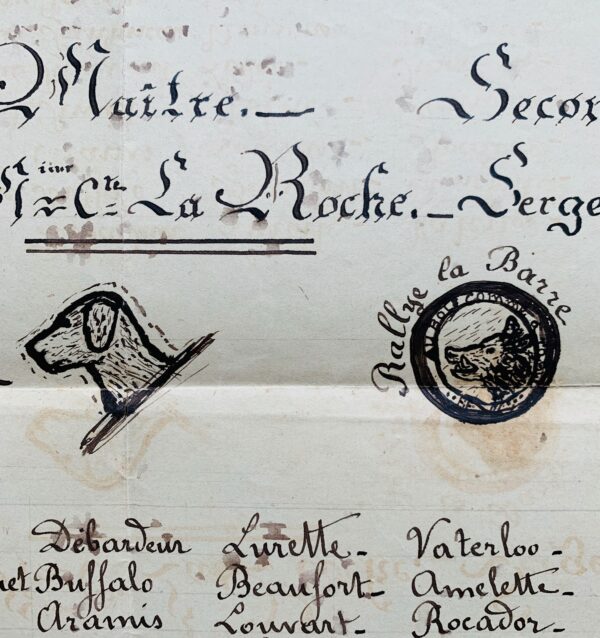 Maître. _ Secon
Cte La Roche. _ Serge
Rallye la Barre
Au Bois comme
Débardeur Lurette _ Vaterloo _
et Buffalo Beaufort _ Amelette _
Aramis Louvart _ Rocador _